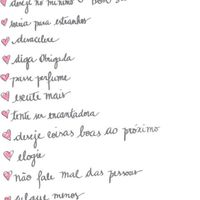 deseje no mínimo o "bom di
sorria para estranhos
desacelere
diga obrigada
passe perfume
escute mais
tente ser encantadora
deseje coisas boas ao próximo
elogie
não fale mal das pessoas
fale menos